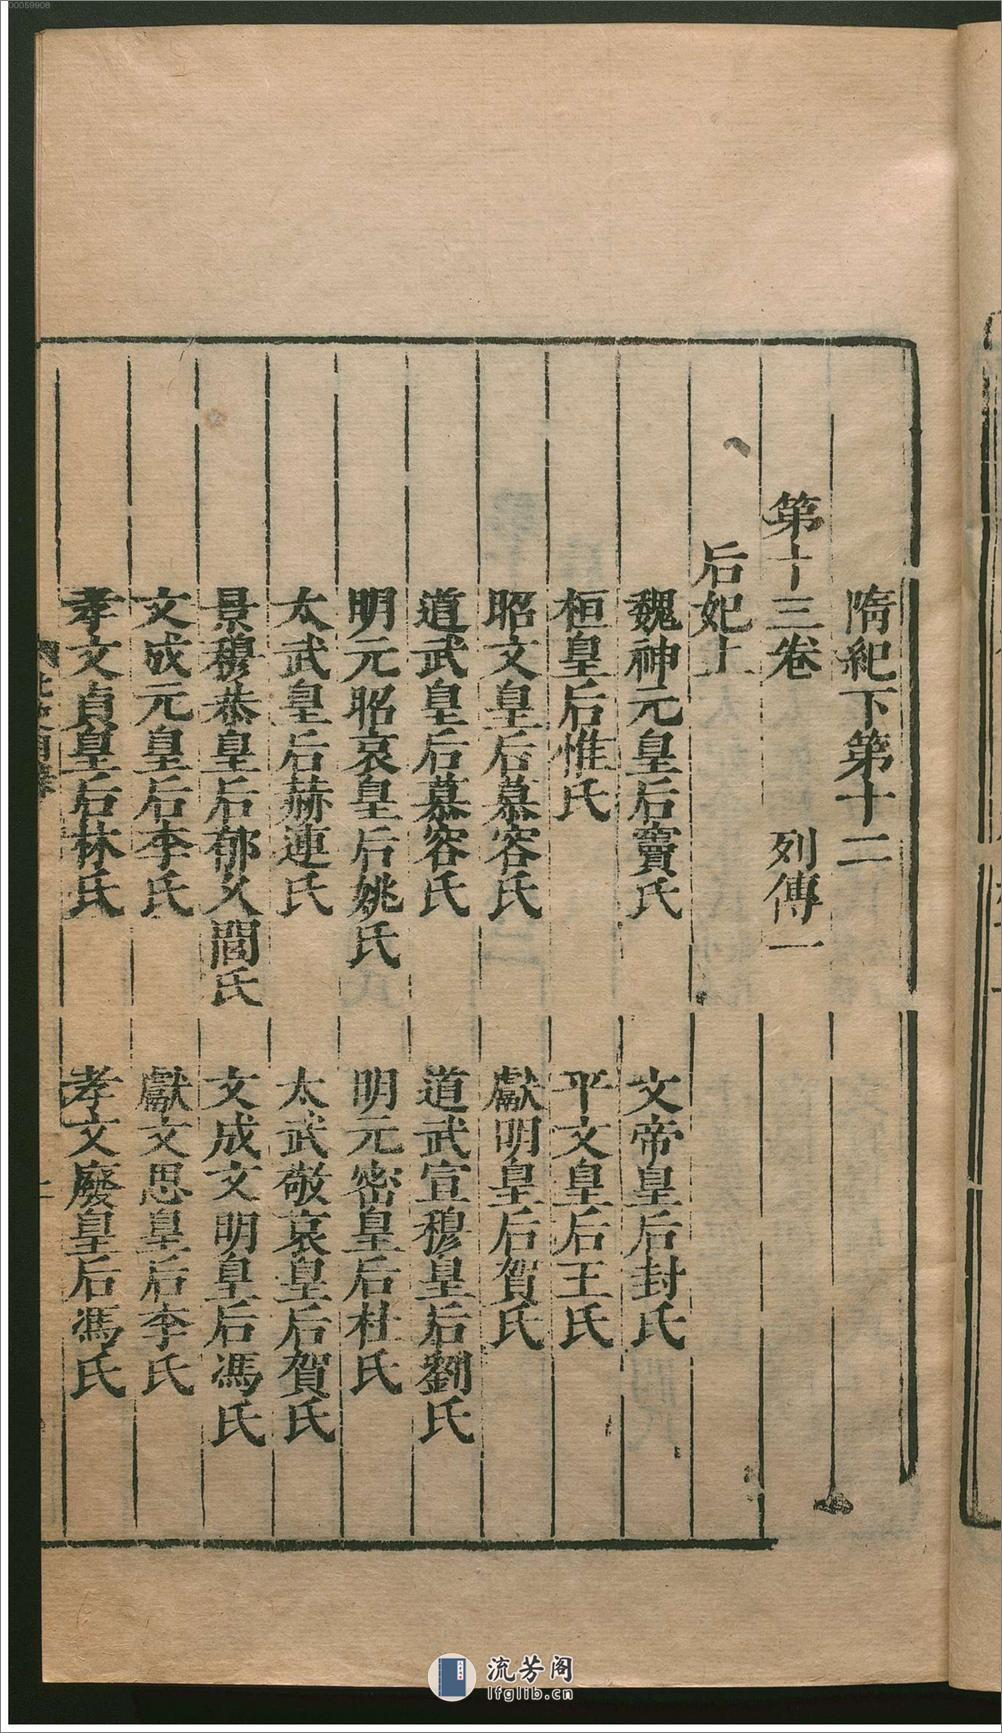 00059908
隋紀下第十二
第十三卷 列傳一
后妃上
魏神元皇后竇氏 文帝皇后封氏
桓皇后惟氏 平文皇后王氏
昭文皇后慕容氏 獻明皇后賀氏
道武皇后慕容氏 道武宣穆皇后劉氏
明元昭哀皇后姚氏 明元密皇后杜氏
太武皇后赫連氏 太武敬哀皇后賀氏
景穆恭皇后郁久閭氏 文成文明皇后馮氏
文成元皇后李氏 獻文思皇后李氏
孝文貞皇后林氏 孝文廢皇后馮氏
北史目錄
流芳阁
lfglib.cn